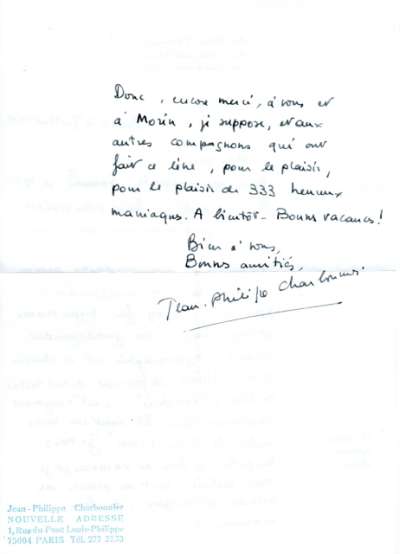 Donc, encore merci, à vous et
à Morin, je suppose, et aux
autres compagnons qui ont
fait ce livre, pour le plaisir,
pour le plaisir de 333 heureux
maniaques. A bientôt - Bonnes vacances!
Bien à vous,
Bonnes amitiés,
Jean-Philippe Charbonnier
Jean-Philippe Charbonnier
NOUVELLE ADRESSE
1, Rue du Pont Louis-Philippe
75004 PARIS Tél. 277